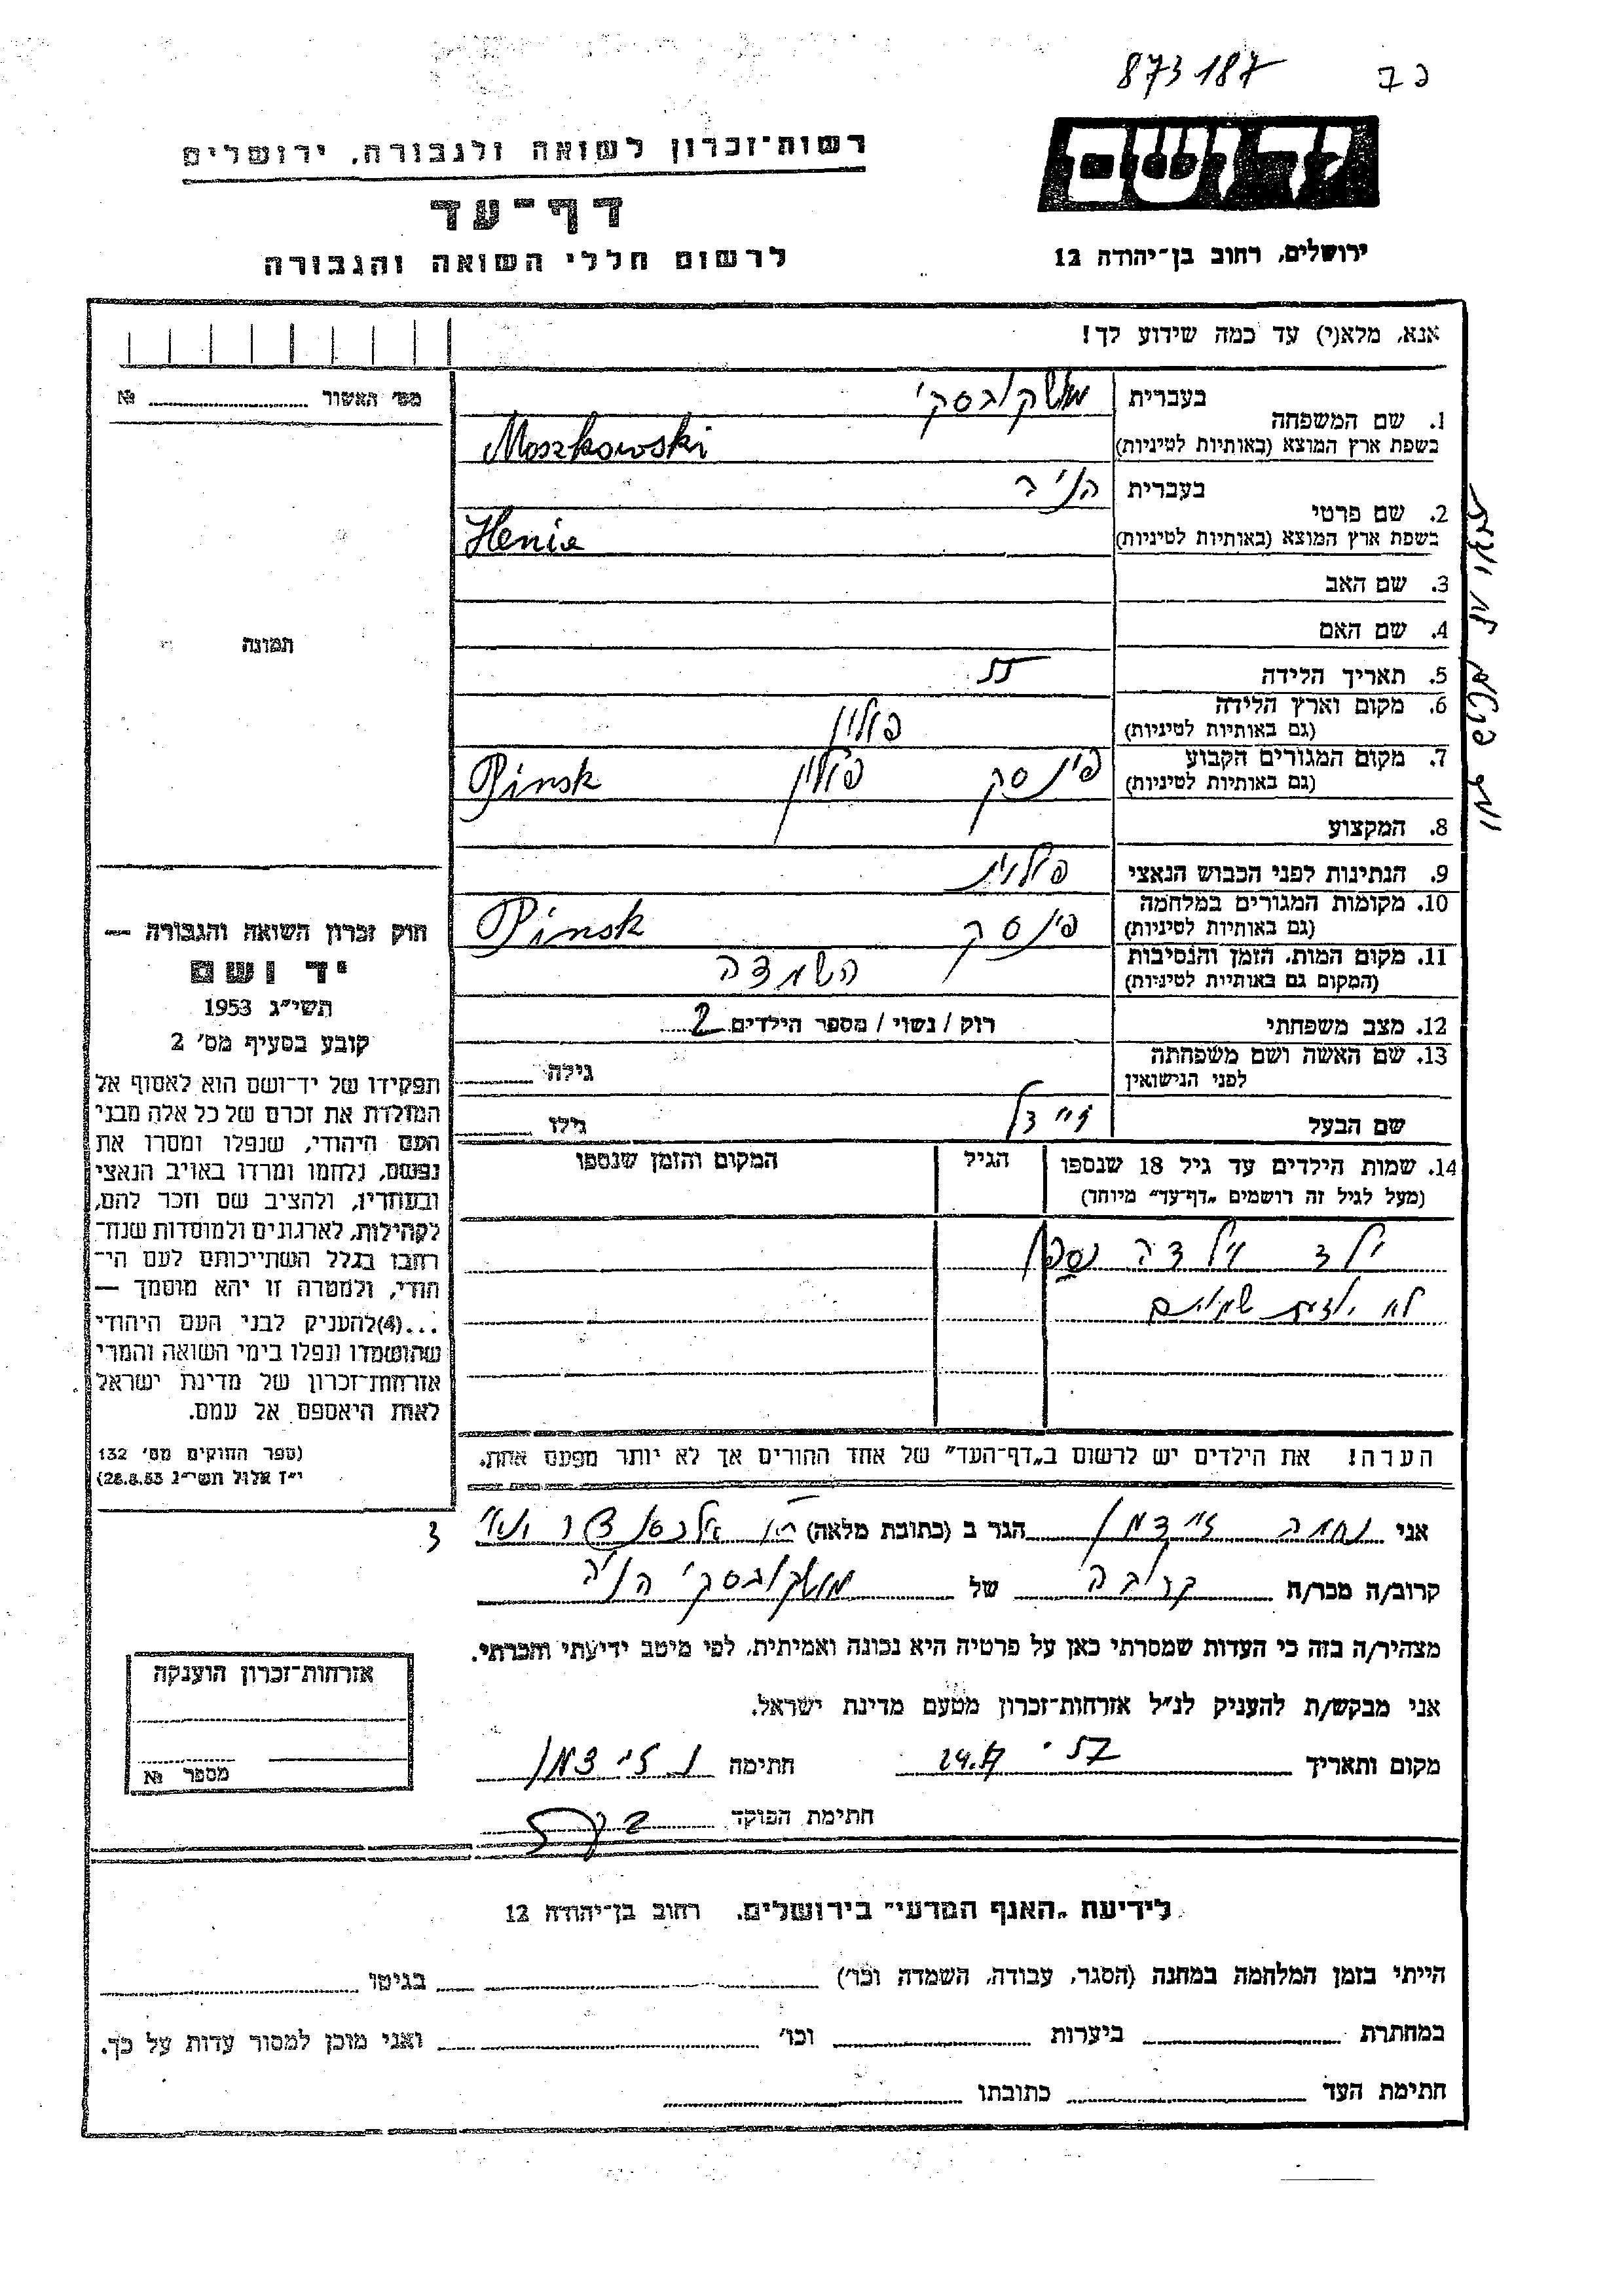 873187
רשות־זכרון לשואה ולגבורה, ירושלים
דף־עד
לרשום חללי השואה והגבורה
יד ושם
ירושלים, רחוב בן־יהודה 12
אנא, מלא(י) עד כמה שידוע לך!
מס׳ האשור № 
1. שם המשפחה
בעברית מושקובסקי
בשפת ארץ המוצא (באותיות לטיניות) Moszkowski
2. שם פרטי
בעברית הניה
בשפת ארץ המוצא (באותיות לטיניות) Henia
3. שם האב
4. שם האם
תמונה
5. תאריך הלידה
6. מקום וארץ הלידה
(גם באותיות לטיניות) פולין
7. מקום המגורים הקבוע
(גם באותיות לטיניות) פינסק פולין Pinsk
8. המקצוע
9. הנתינות לפני הכבוש הנאצי פולנית
10. מקומות המגורים במלחמה
(גם באותיות לטיניות) פינסק Pinsk
11. מקום המות, הזמן והנסיבות
(המקום גם באותיות לטיניות) השמדה
12. מצב משפחתי רוק / נשוי / מספר הילדים 2
13. שם האשה ושם משפחתה
לפני הנישואין גילה
שם הבעל זיידל גילו
14. שמות הילדים עד גיל 18 שנספו
(מעל לגיל זה רושמים „דף־עד״ מיוחד)
הגיל
המקום והזמן שנספו
ילד וילדה נספו
לא יודעת שמותם
הערה! את הילדים יש לרשום ב„דף־העד״ של אחד ההורים אך לא יותר מפעם אחת.
חוק זכרון השואה והגבורה —
יד ושם
תשי״ג 1953
קובע בסעיף מס׳ 2
תפקידו של יד־ושם הוא לאסוף אל
המולדת את זכרם של כל אלה מבני
העם היהודי, שנפלו ומסרו את
נפשם, נלחמו ומרדו באויב הנאצי
ובעוזריו, ולהציב שם וזכר להם,
לקהילות, לארגונים ולמוסדות שנח־
רבו בגלל השתייכותם לעם הי־
הודי, ולמטרה זו יהא מוסמך —
...(4)להעניק לבני העם היהודי
שהושמדו ונפלו בימי השואה והמרי
אזרחות־זכרון של מדינת ישראל
לאות היאספם אל עמם.
(ספר החוקים מס׳ 132
י״ז אלול תשי״ג 28.8.53)
אני נחמה זיידמן הגר ב (כתובת מלאה)
קרוב/ה מכר/ה קרובה של מושקובסקי הניה
מצהיר/ה בזה כי העדות שמסרתי כאן על פרטיה היא נכונה ואמיתית, לפי מיטב ידיעתי והכרתי.
אני מבקש/ת להעניק לנ״ל אזרחות־זכרון מטעם מדינת ישראל.
מקום ותאריך חתימה נ. זיידמן
חתימת הפוקד
אזרחות־זכרון הוענקה
מספר №
לידיעת „האגף המדעי״ בירושלים, רחוב בן־יהודה 12
הייתי בזמן המלחמה במחנה (הסגר, עבודה, השמדה וכו׳) בגיטו
במחתרת ביערות וכו׳ ואני מוכן למסור עדות על כך.
חתימת העד כתובתו